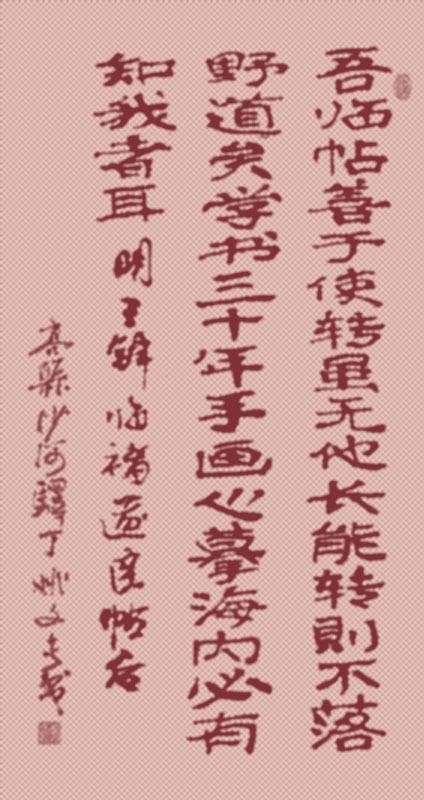 吾临帖善于使转虽无他长能转則不落
野道矣学书三十年手画心摹海内必有
知我者耳 明王铎临褚遂良帖后
沙河驛丁